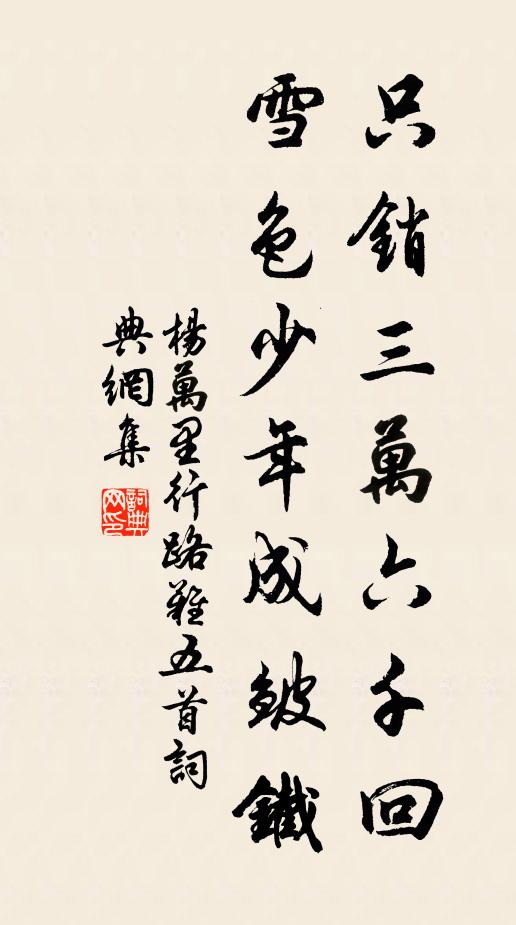 只銷三萬六千回
雪色少年成皺鐵
楊萬里行路難五首詞
典網集
詞典網印